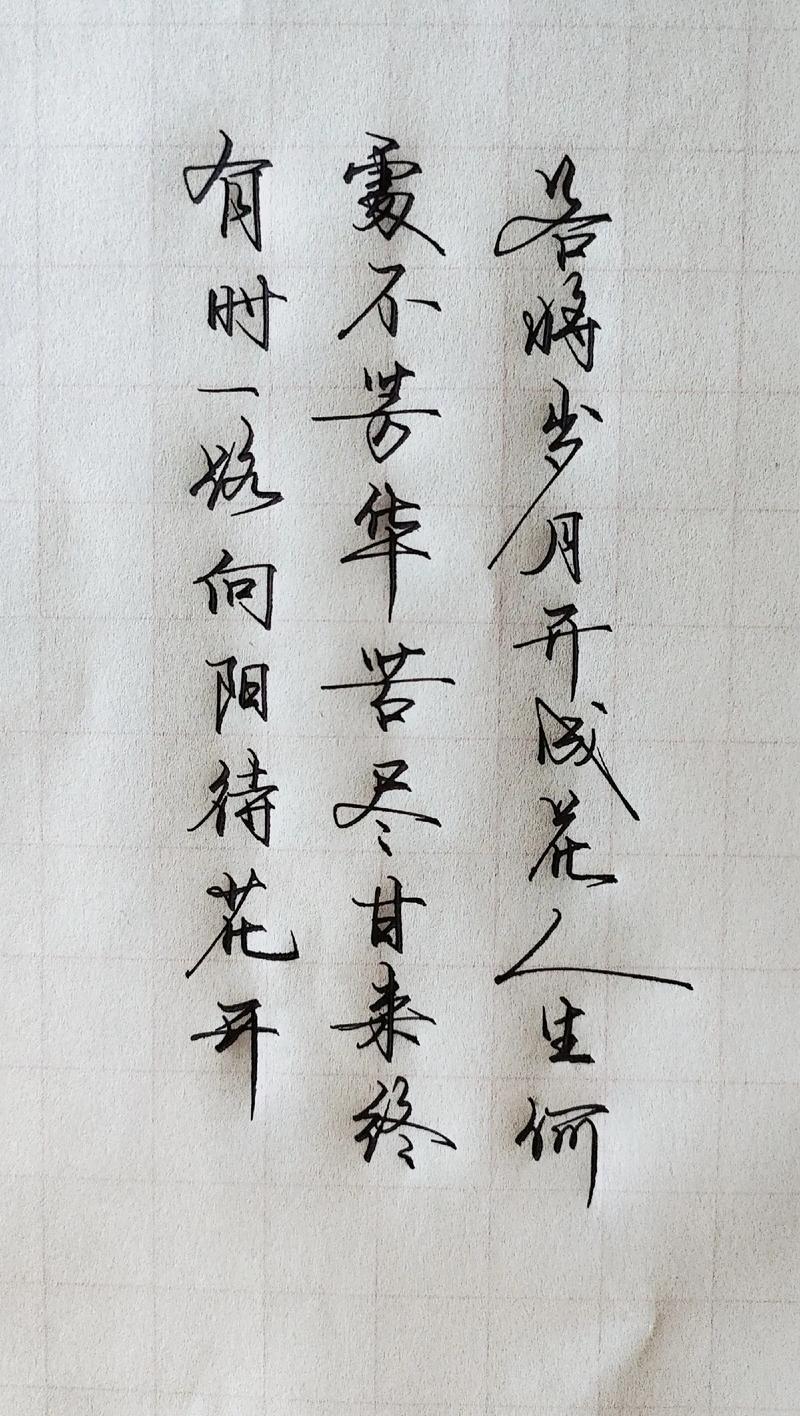 若将岁月开成花人生何
处不芳华苦尽甘来终
有时一路向阳待花开